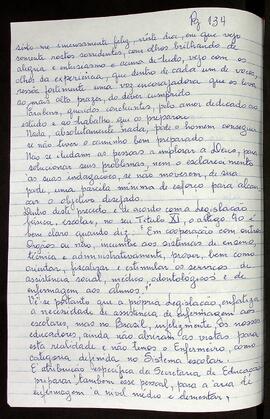 Pg 134
sinto-me imensamente feliz, neste dia, em que vejo
somente rostos sorridentes, com olhos brilhando de
alegria e entusiasmo e acima de tudo, vejo com os
olhos da experiência, que dentro de cada um de vocês,
ressôa fortemente uma voz encorajadora que os leva
ao mais alto prazer, do dever cumprido.
Parabéns, queridos concluintes, pelo amor dedicado ao
estudo e ao trabalho que os preparou.
Nada, absolutamente nada, pode o homem conseguir
se não tiver o caminho bem preparado.
Não se ajudam as pessoas a implorar a Deus, para
solucionar seus problemas, nem o esclarecimento
as suas indagações, se não moverem, de sua
parte, uma parcela mínima de esforço para alcan-
çar o objetivo desejado.
Dentro deste preceito e de acordo com a legislação
básica, escolar, no seu Título XI, o artigo 90 é
bem claro quando diz: "Em cooperação com outros
órgãos ou não, incumbe aos sistemas de ensino,
técnica e administrativamente, prover, bem como
orientar, fiscalizar e estimular os serviços de
assistência social, médico, odontológicos e de
enfermagem aos alunos".
Vê-se portanto que a própria legislação, enfatiza
a necessidade de assistência de enfermagem aos
escolares, mas no Brasil, infelizmente, os nossos
educadores, ainda não abriram as vistas para
esta realidade e não temos o Enfermeiro, como
categoria definida no Sistema escolar.
É atribuição específica da Secretaria de Educação
preparar também esse pessoal, para a área de
enfermagem a nível médio e elementar,